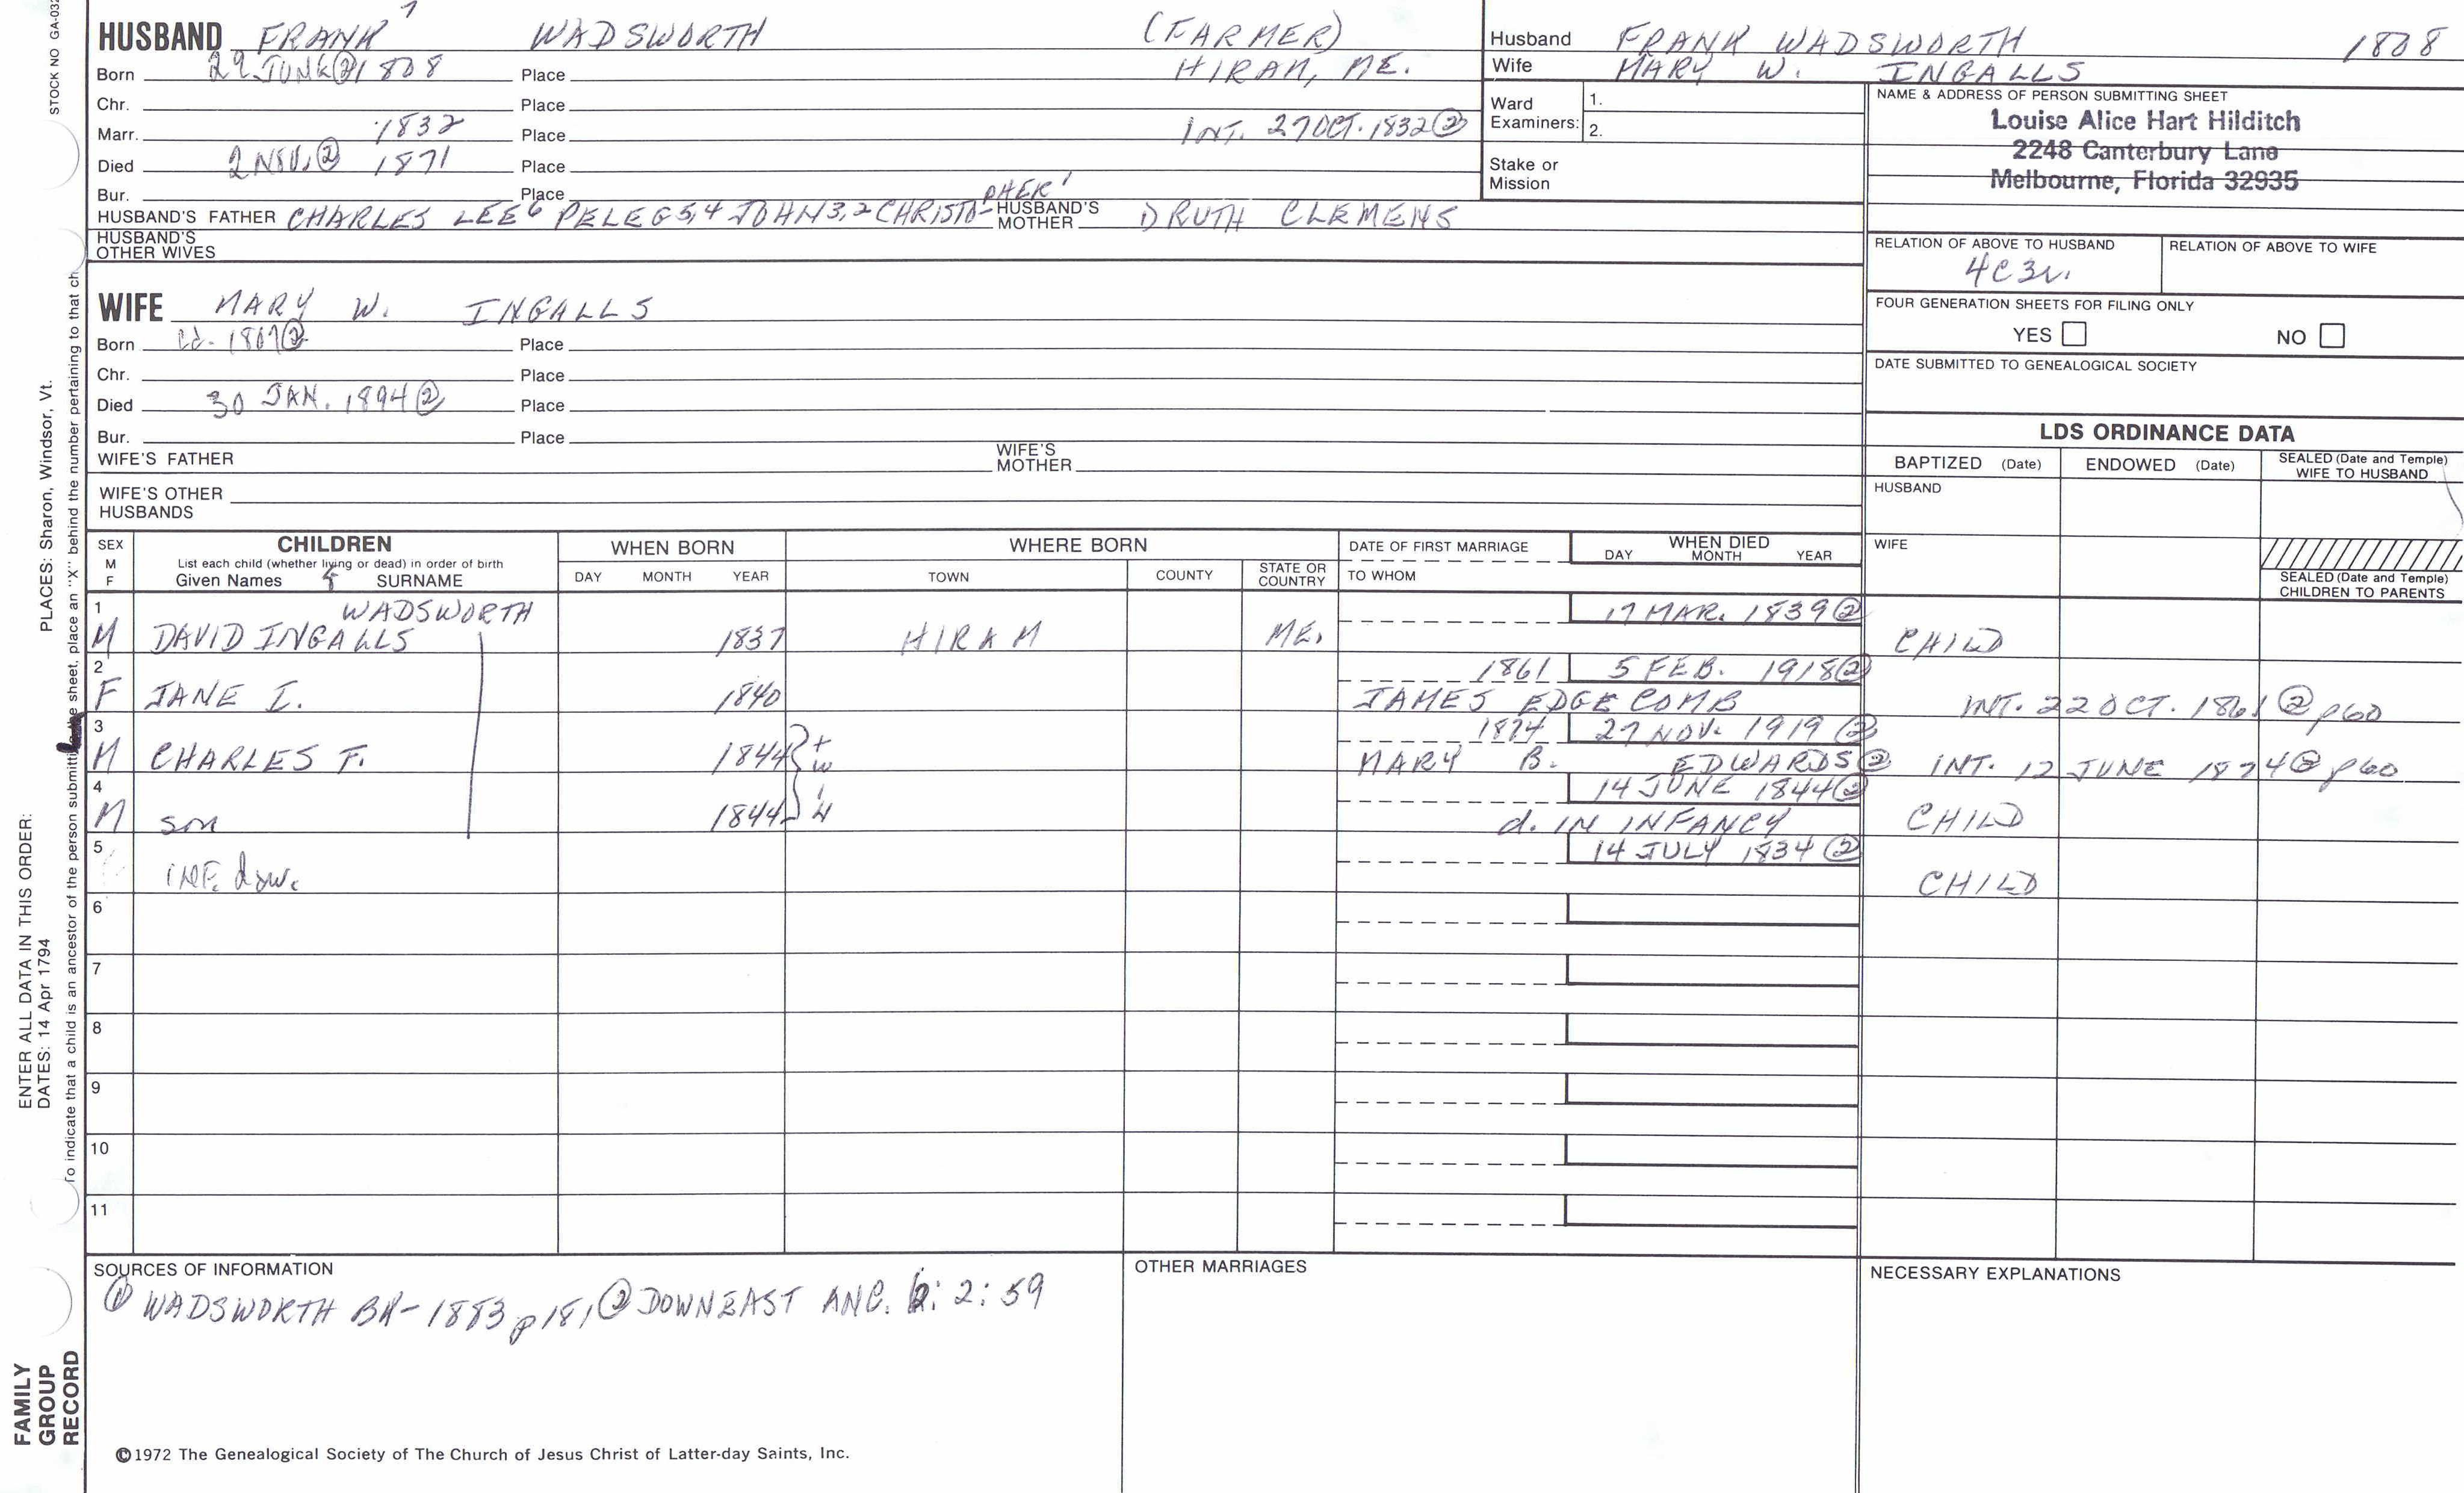 STOCK NO GA-032
HUSBAND FRANK 7 WADSWORTH (FARMER)
Born 29 JUNE ② 1808 Place HIRAM, ME.
Chr. Place
Marr. 1832 Place INT. 27 OCT. 1832 ②
Died 2 NOV. ② 1871 Place
Bur. Place
HUSBAND'S FATHER CHARLES LEE 6 PELEG 5,4 JOHN 3,2 CHRISTO-PHER 1 HUSBAND'S MOTHER DRUTH CLEMENS
HUSBAND'S OTHER WIVES
WIFE MARY W. INGALLS
Born Place
Chr. Place
Died 30 JAN. 1894 ② Place
Bur. Place
WIFE'S FATHER WIFE'S MOTHER
WIFE'S OTHER HUSBANDS
Husband FRANK WADSWORTH 1808
Wife MARY W. INGALLS
Ward Examiners: 1.
2.
Stake or Mission
NAME & ADDRESS OF PERSON SUBMITTING SHEET
Louise Alice Hart Hilditch
2248 Canterbury Lane
Melbourne, Florida 32935
RELATION OF ABOVE TO HUSBAND RELATION OF ABOVE TO WIFE
4C3r.
FOUR GENERATION SHEETS FOR FILING ONLY
YES NO
DATE SUBMITTED TO GENEALOGICAL SOCIETY
LDS ORDINANCE DATA
BAPTIZED (Date) ENDOWED (Date) SEALED (Date and Temple) WIFE TO HUSBAND
HUSBAND
WIFE
SEALED (Date and Temple) CHILDREN TO PARENTS
SEX M F CHILDREN WHEN BORN WHERE BORN DATE OF FIRST MARRIAGE WHEN DIED
List each child (whether living or dead) in order of birth
Given Names SURNAME DAY MONTH YEAR TOWN COUNTY STATE OR COUNTRY TO WHOM DAY MONTH YEAR
1 WADSWORTH 17 MAR. 1839 ②
M DAVID INGALLS 1837 HIRAM ME. CHILD
2 1861 5 FEB. 1918 ②
F JANE I. 1840 JAMES EDGECOMB INT. 22 OCT. 1861 ② p60
3 1874 27 NOV. 1919 ②
M CHARLES F. 1844 twin MARY B. EDWARDS ② INT. 12 JUNE 1874 ② p60
4 14 JUNE 1844 ②
M son 1844 d. IN INFANCY CHILD
5 14 JULY 1834 ②
INF. daw. CHILD
6
7
8
9
10
11
SOURCES OF INFORMATION
① WADSWORTH BK- 1883 p181 ② DOWNEAST ANC. 2: 59
OTHER MARRIAGES
NECESSARY EXPLANATIONS
©1972 The Genealogical Society of The Church of Jesus Christ of Latter-day Saints, Inc.
FAMILY GROUP RECORD
ENTER ALL DATA IN THIS ORDER:
DATES: 14 Apr 1794
PLACES: Sharon, Windsor, Vt.
To indicate that a child is an ancestor of the person submitting the sheet, place an "X" behind the number pertaining to that ch